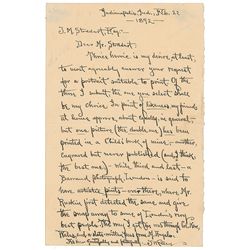 Indianapolis, Ind., Feb. 22
—1892—
J. M. Stoddart, Esq.—
Dear Mr. Stoddart.
Yours herein is my desire, at least,
to most agreeably answer your request
for a portrait suitable to print. Of the
three I submit, the one you select shall
be my choice. In point of likeness my friends
at home approve about equally, in general,
but one picture (the double one) has been
printed in a Child's book of mine,— another
Cupboard but never published (and, I think,
the best one), while third and last—a
Barraud photograph, London—is said to
have artistic points— where Mr.
Ruskin first detected the same, and gave
the snap away to some of London's very
best people. The
Faithfully and gratefully, J. W. Riley